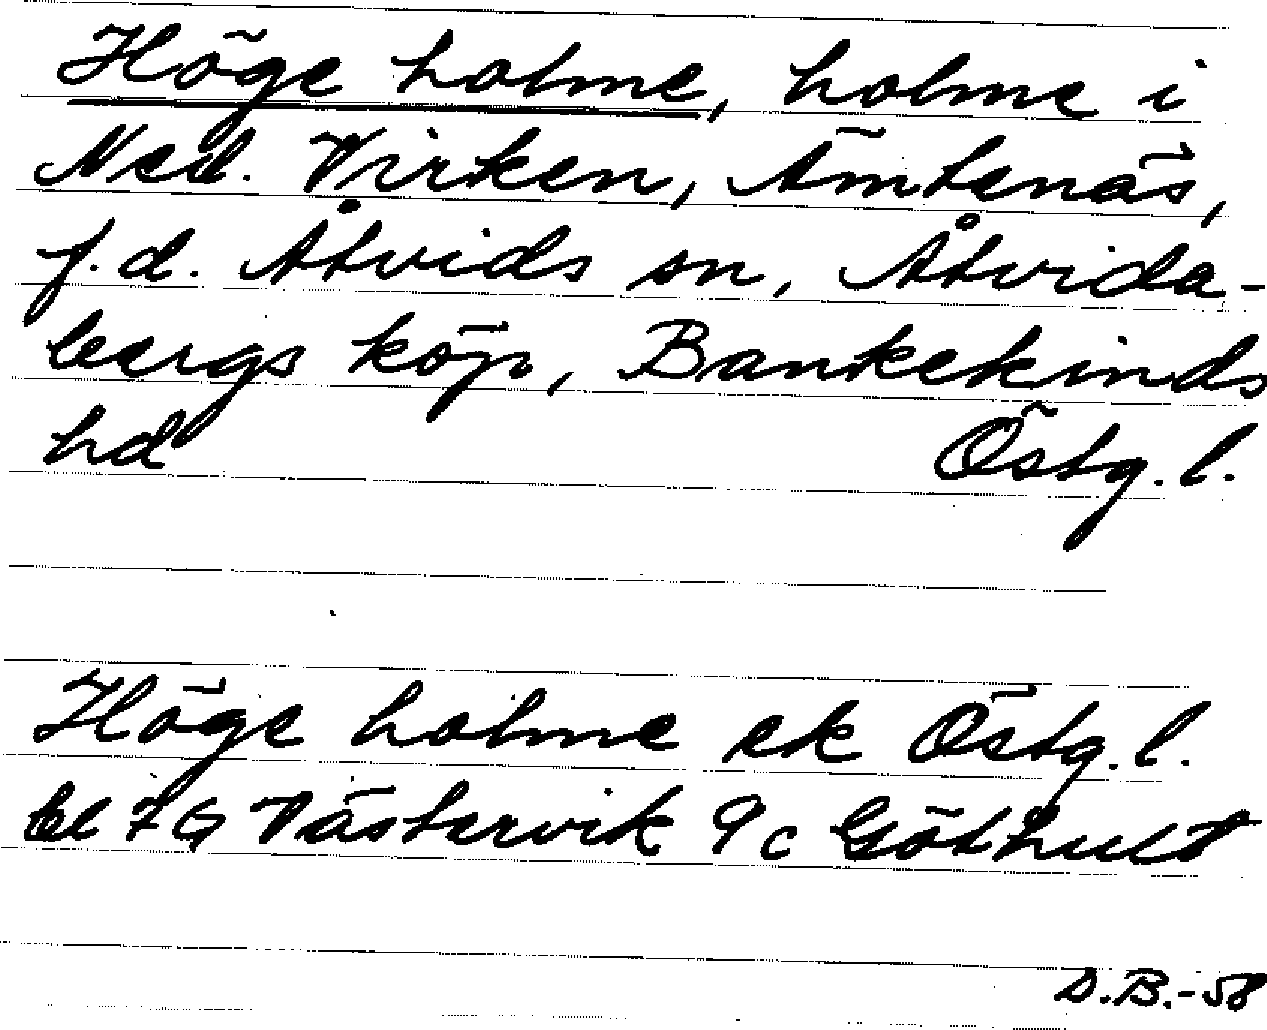 Höge holme, holme i
Ned. Virken, Ämtenäs,
f.d. Åtvids sn, Åtvida-
bergs köp, Bankekinds
hd Östg. l.
Höge holme ek Östg. l.
bl 7G Västervik 9c Göthult
D.B.-58